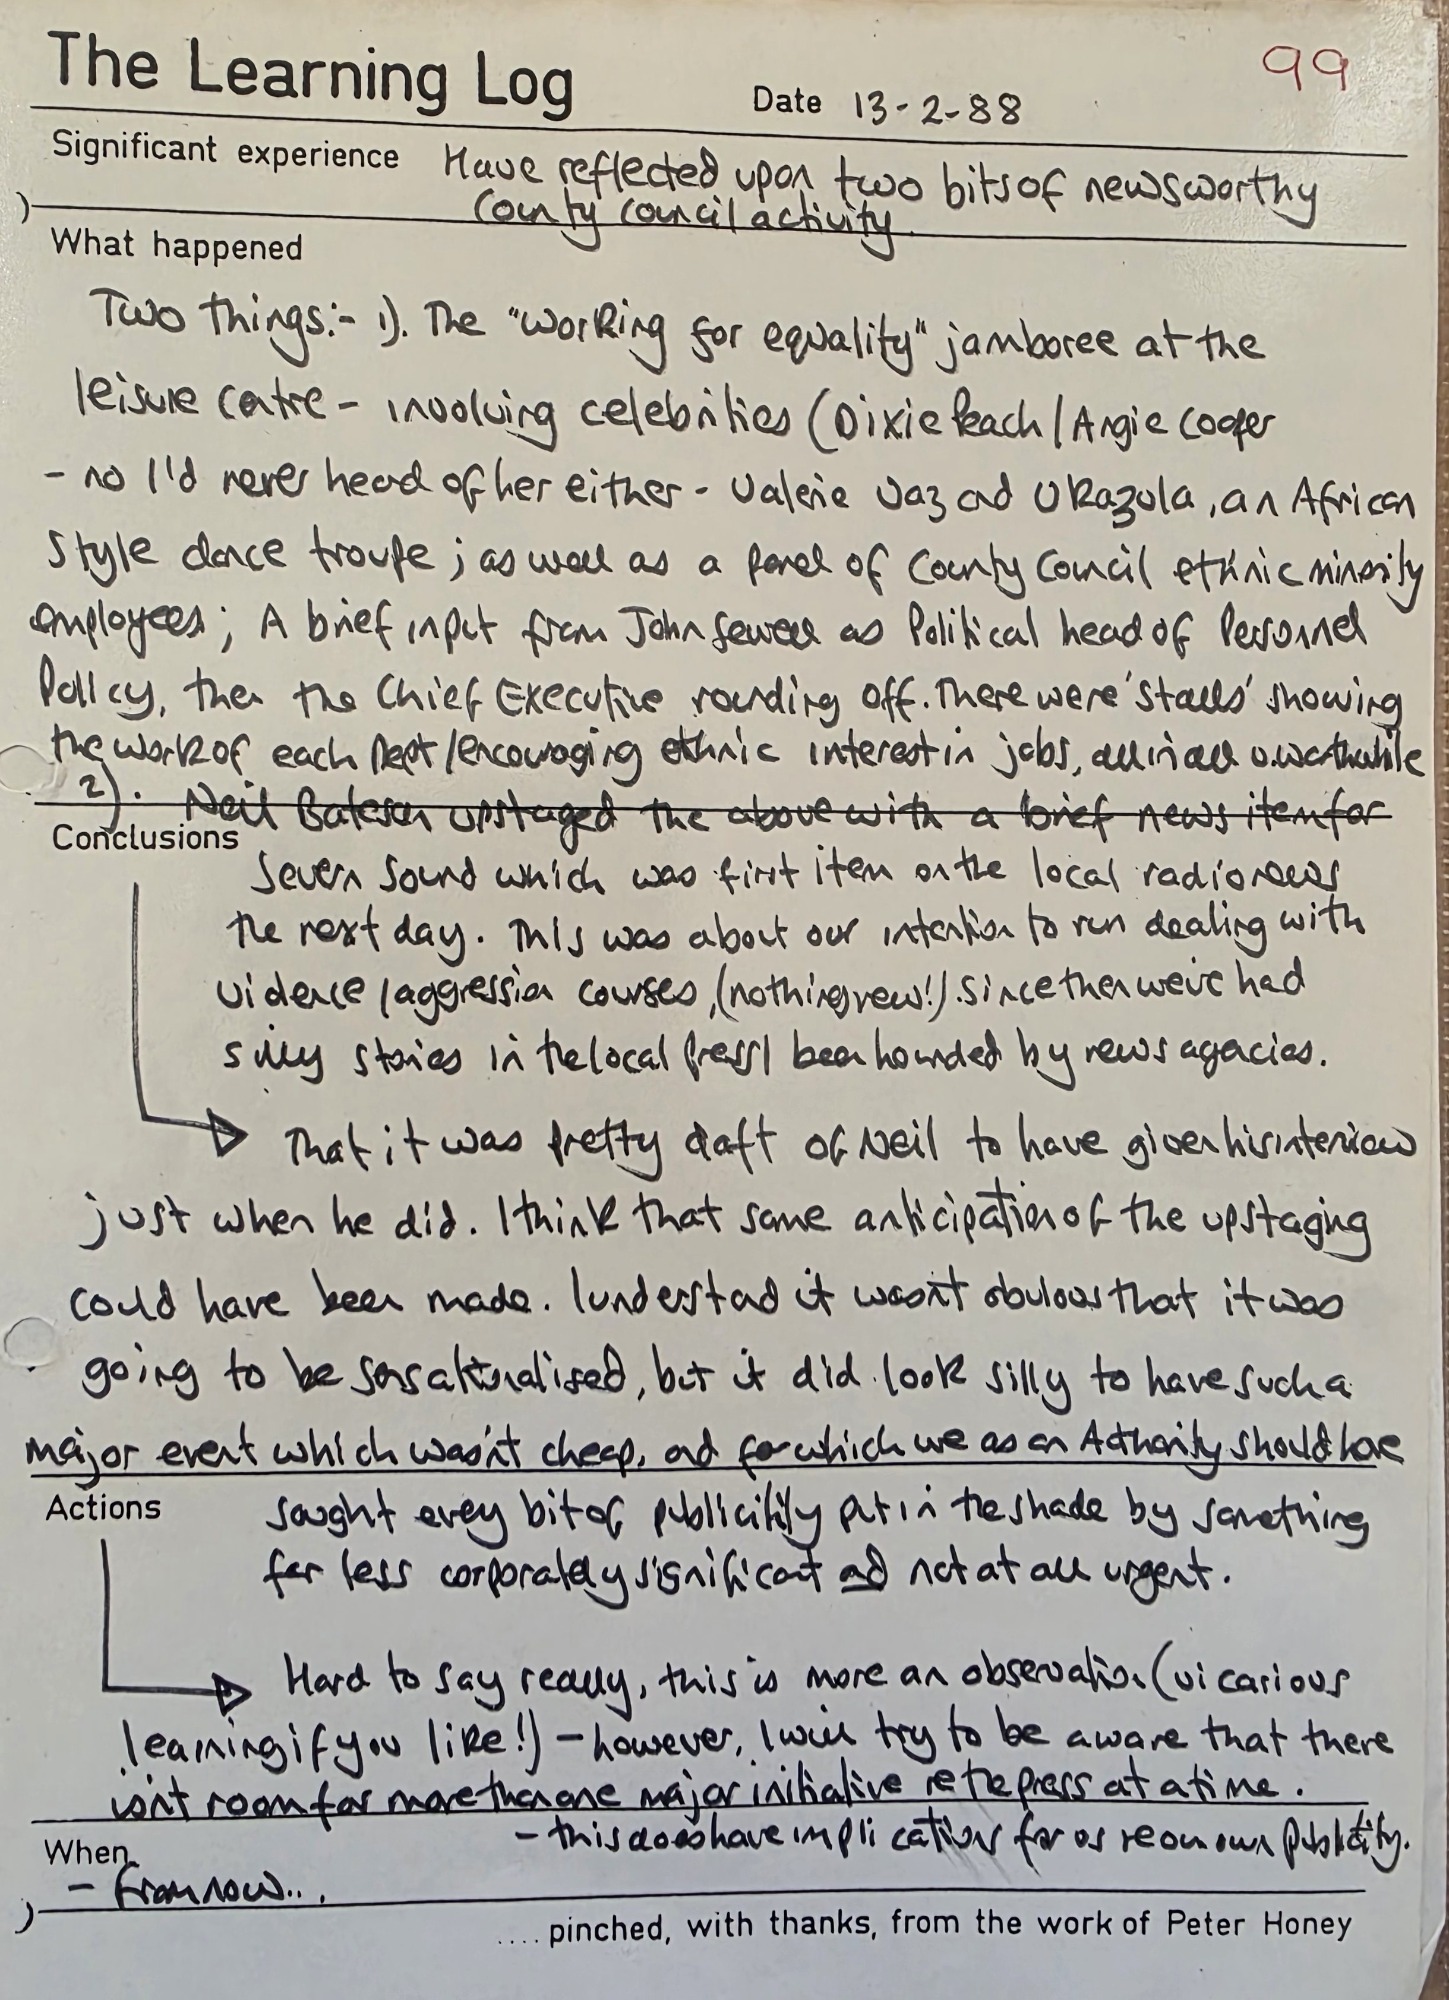 The Learning Log
99
Date 13-2-88
Significant experience Have reflected upon two bits of newsworthy
County council activity.
What happened
Two things:- 1). The "working for equality" jamboree at the
leisure centre - involving celebrities (Dixie Peach / Angie Cooper
- no I'd never head of her either - Valerie Vaz and Ukazula, an African
Style dance troupe ; as well as a panel of County Council ethnic minority
employees ; A brief input from John Sewell as Political head of Personnel
Policy, then the Chief Executive rounding off. There were 'stalls' showing
the work of each Dept / encouraging ethnic interest in jobs, all in all worthwhile
2). Neil Bateson upstaged the above with a brief news item for
Conclusions
Severn Sound which was first item on the local radio news
the next day. This was about our intention to run dealing with
violence / aggression courses, (nothing new!). Since then we've had
silly stories in the local press / been hounded by news agencies.
That it was pretty daft of Neil to have given his interview
just when he did. I think that some anticipation of the upstaging
could have been made. I understand it wasn't obvious that it was
going to be sensationalised, but it did look silly to have such a
major event which wasn't cheap, and for which we as an Authority should have
Actions
sought every bit of publicity put in the shade by something
far less corporately significant and not at all urgent.
Hard to say really, this is more an observation (vicarious
learning if you like!) - however, I will try to be aware that there
isn't room for more than one major initiative re the press at a time.
- this does have implications for us re our own publicity.
When
- from now...
.... pinched, with thanks, from the work of Peter Honey